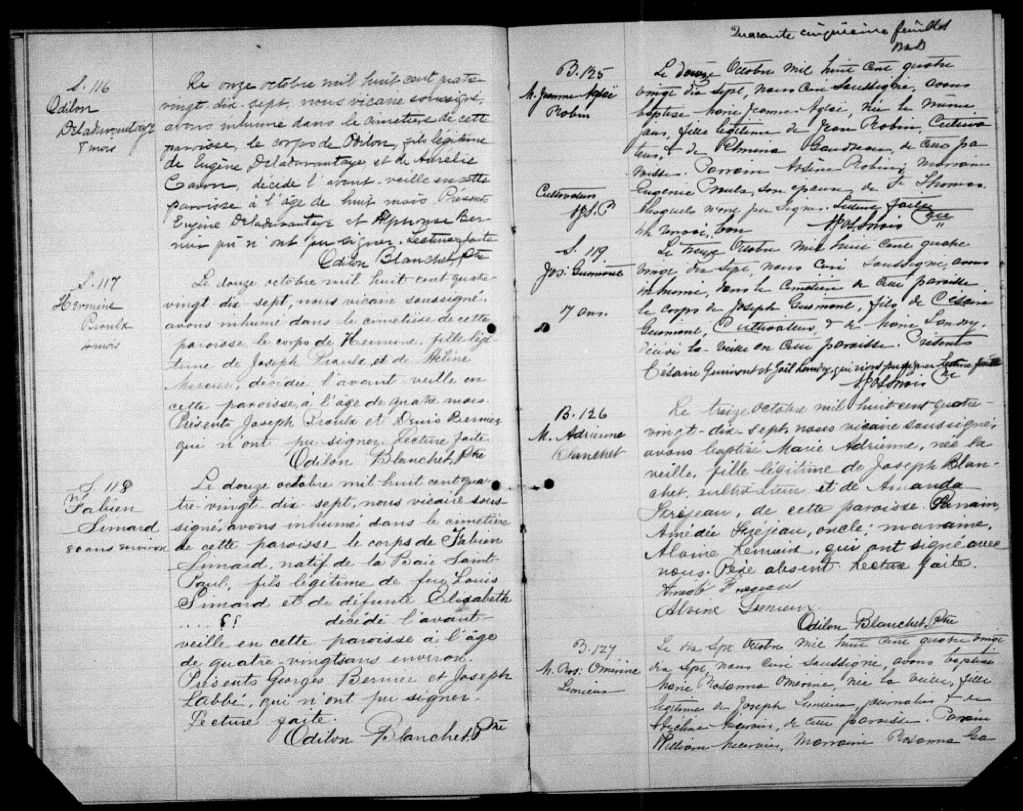 S. 116
Odilon
Deladurantaye
8 mois
Le onze octobre mil huit cent quatre
vingt dix-sept, nous vicaire soussigné,
avons inhumé dans le cimetière de cette
paroisse, le corps de Odilon, fils légitime
de Eugène Deladurantaye et de Aurélie
Caron, décédé l'avant-veille en cette
paroisse à l'âge de huit mois. Présents
Eugène Deladurantaye et Alphonse Ber-
nier qui n'ont pu signer. Lecture faite
Odilon Blanchet, Ptre
S. 117
Hermine
Proulx
4 mois
Le douze octobre mil huit cent quatre
vingt dix sept, nous vicaire soussigné,
avons inhumé dans le cimetière de cette
paroisse, le corps de Hermine, fille légi
time de Joseph Proulx et de Hélène
Mercier, décédée l'avant-veille en
cette paroisse, à l'âge de quatre mois.
Présents Joseph Proulx et Denis Bernier
qui n'ont pu signer. Lecture faite
Odilon Blanchet, Ptre
S. 118
Fabien
Simard
80 ans environ
Le douze octobre mil huit cent qua-
tre-vingt dix sept, nous vicaire sous-
signé, avons inhumé dans le cimetière
de cette paroisse le corps de Fabien
Simard, natif de la Baie Saint-
Paul, fils légitime de feu Louis
Simard et de défunte Elisabeth
.... ?? décédé l'avant-
veille en cette paroisse à l'âge
de quatre-vingts ans environ.
Présents Georges Bernier et Joseph
Labbé, qui n'ont pu signer.
Lecture faite.
Odilon Blanchet, Ptre
Quarante cinquième feuillet
B. 125
M. Jeanne Aglaé
Robin
Le douze Octobre mil huit cent quatre
vingt dix sept, nous curé soussigné, avons
baptisé Marie Jeanne Aglaé, née le même
jour, fille légitime de Jean Robin, Cultiva
teur, & de Elmina Gaudreau, de cette pa
roisse. Parrain Arsène Robin, Marraine
Eugenie Proulx, son épouse, de St Thomas,
lesquels n'ont pu signer. Lecture faite
Cultivateur
S. 119
Jos. Guimont
17 ans.
Le treize Octobre mil huit cent quatre
vingt dix sept, nous curé soussigné, avons
inhumé, dans le cimetière de cette paroisse
le corps de Joseph Guimont, fils de Césaire
Guimont, Cultivateur, & de Marie Landry,
décédé la veille en cette paroisse. Présents
Césaire Guimont et Joël Landry, qui n'ont pu signer Lecture faite
B. 126
M. Adrienne
Blanchet
Le treize octobre mil huit cent quatre-
vingt-dix sept, nous vicaire soussigné,
avons baptisé Marie Adrienne, née la
veille, fille légitime de Joseph Blan-
chet, cultivateur et de Amanda
Frégeau, de cette paroisse. Parrain,
Amédée Frégeau, oncle; marraine,
Alvine Lemieux, qui ont signé avec
nous. Père absent. Lecture faite.
Frégeau
Alvine Lemieux
Odilon Blanchet, Ptre
B. 127
M. Ros. Omérine
Lemieux
Le dix sept Octobre mil huit cent quatre vingt
dix sept, nous curé soussigné, avons baptisé
Marie Rosanna Omérine, née la veille, fille
légitime de Joseph Lemieux, journalier & de
Mercier, de cette paroisse. Parrain
William Mercier, Marraine Rosanna Ga